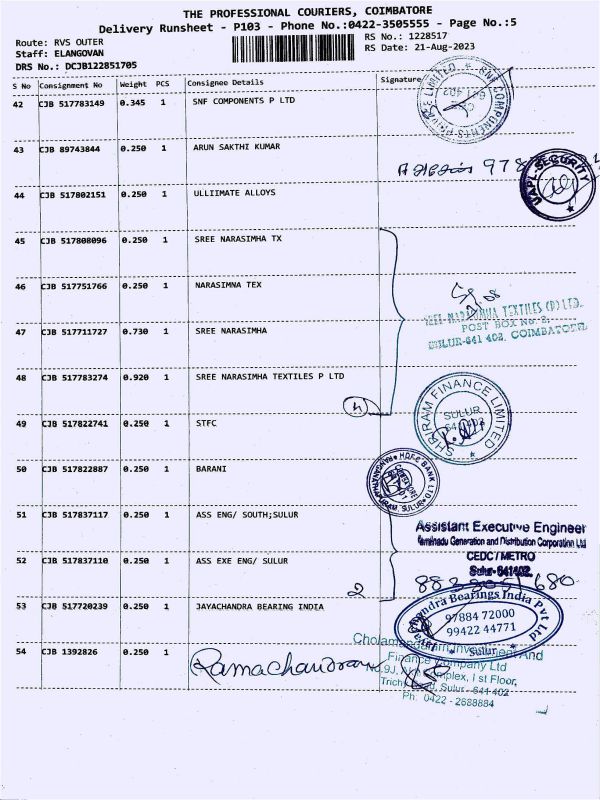 THE PROFESSIONAL COURIERS, COIMBATORE
Delivery Runsheet - P103 - Phone No.:0422-3505555 - Page No.:5
Route: RVS OUTER
Staff: ELANGOVAN
DRS No.: DCJB122851705
RS No.: 1228517
RS Date: 21-Aug-2023
S No Consignment No Weight PCS Consignee Details Signature
42 CJB 517783149 0.345 1 SNF COMPONENTS P LTD
43 CJB 89743844 0.250 1 ARUN SAKTHI KUMAR
UAPL-SECURITY
44 CJB 517802151 0.250 1 ULLIIMATE ALLOYS
45 CJB 517808096 0.250 1 SREE NARASIMHA TX
46 CJB 517751766 0.250 1 NARASIMNA TEX
NARASIMHA TEXTILES (P) LTD.
POST BOX No. 2,
SULUR-641 402. COIMBATORE
47 CJB 517711727 0.730 1 SREE NARASIMHA
48 CJB 517783274 0.920 1 SREE NARASIMHA TEXTILES P LTD
4
49 CJB 517822741 0.250 1 STFC
SHRIRAM FINANCE LIMITED
SULUR
641402
50 CJB 517822887 0.250 1 BARANI
HDFC BANK LTD
SULUR
51 CJB 517837117 0.250 1 ASS ENG/ SOUTH;SULUR
Assistant Executive Engineer
Tamilnadu Generation and Distribution Corporation Ltd
CEDC/METRO
Sulur-641402.
52 CJB 517837110 0.250 1 ASS EXE ENG/ SULUR
2
53 CJB 517720239 0.250 1 JAYACHANDRA BEARING INDIA
Bearings India Pvt Ltd
97884 72000
99422 44771
Sulur
54 CJB 1392826 0.250 1
Ramachandran
Cholamandalam Investment And
Finance Company Ltd
I st Floor,
Sulur - 641 402
Ph: 0422 - 2688884